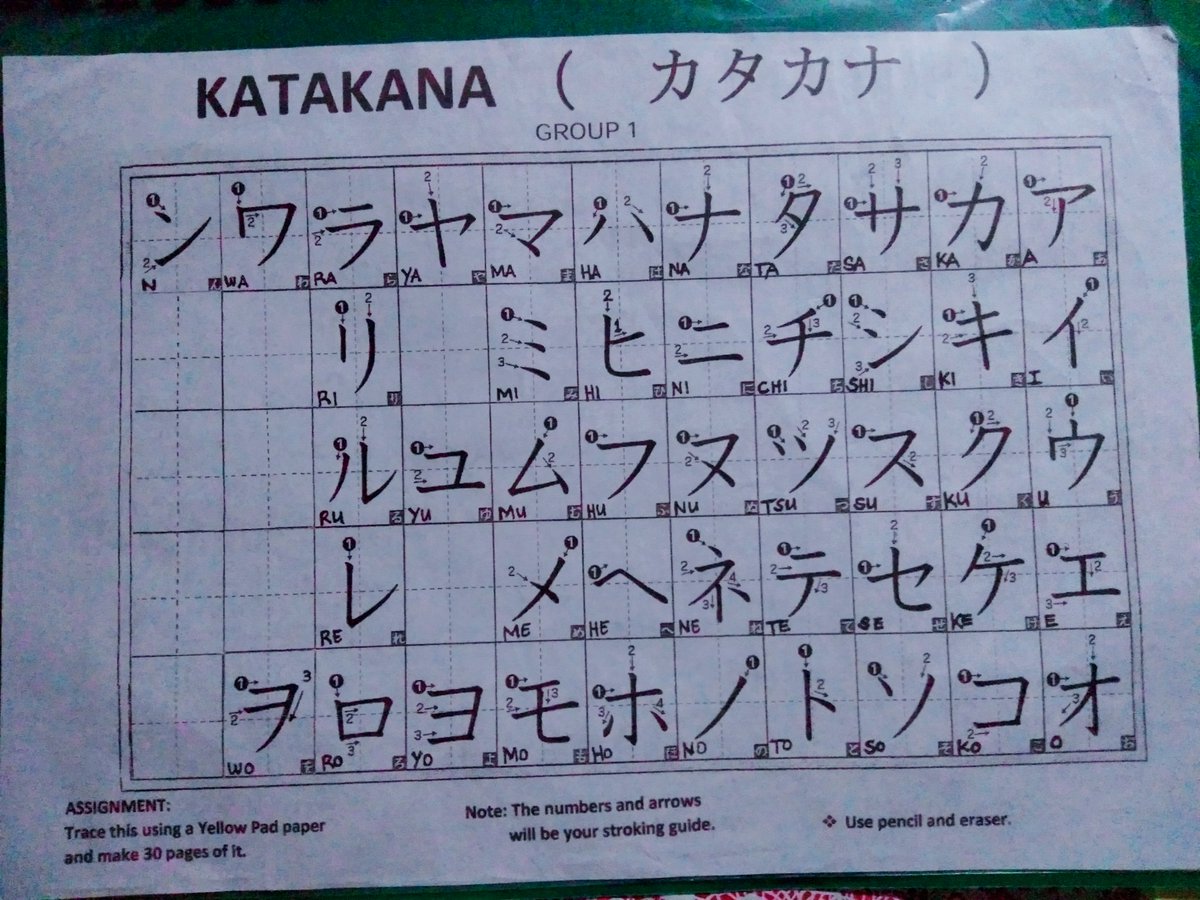 KATAKANA ( カタカナ )
GROUP 1
ン ワ ラ ヤ マ ハ ナ タ サ カ ア
N WA RA YA MA HA NA TA SA KA A
リ ミ ヒ ニ チ シ キ イ
RI MI HI NI CHI SHI KI I
ル ユ ム フ ヌ ツ ス ク ウ
RU YU MU HU NU TSU SU KU U
レ メ ヘ ネ テ セ ケ エ
RE ME HE NE TE SE KE E
ヲ ロ ヨ モ ホ ノ ト ソ コ オ
WO RO YO MO HO NO TO SO KO O
ASSIGNMENT:
Trace this using a Yellow Pad paper
and make 30 pages of it.
Note: The numbers and arrows
will be your stroking guide.
❖ Use pencil and eraser.